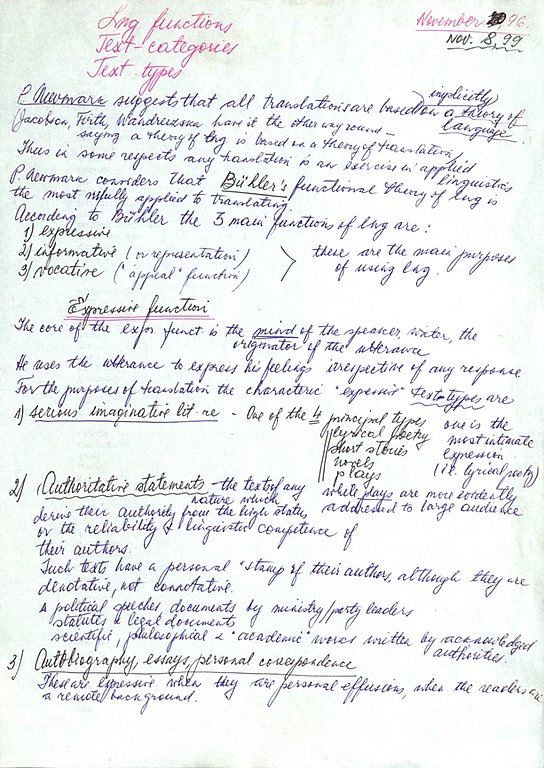 Lng functions
Text-categories
Text types
November 96
Nov. 8, 99
P. Newmark suggests that all translations are based implicitly on a theory of language.
Jacobson, Firth, Wandruszka have it the other way round –
saying a theory of lng is based on a theory of translation,
Thus in some respects any translation is an exercise in applied linguistics
P. Newmark considers that Bühler's functional theory of lng is
the most usefully applied to translating.
According to Bühler the 3 main functions of lng are:
1) expressive
2) informative (or representation)
3) vocative ("appeal" function)
these are the main purposes
of using lng.
Expressive function
The core of the expr. funct is the mind of the speaker, writer, the
originator of the utterance
He uses the utterance to express his feelings irrespective of any response
For the purposes of translation the characteric "expressive" text-types are
1) serious imaginative lit-re – One of the 4 principal types
lyrical poetry
short stories
novels
plays
one is the
most intimate
expression
(i.e. lyrical poetry)
while plays are more evidently
addressed to large audience
2) Authoritative statements – the texts of any
nature which
derive their authority from the high status
or the reliability & linguistic competence of
their authors.
Such texts have a personal "stamp of their authors, although they are
denotative, not connotative.
political speeches, documents by ministry/party leaders
statutes & legal documents
scientific, philosophical & "academic" works written by acknowledged
authorities.
3) Autobiography, essays, personal correspondence
These are expressive when they are personal effusions, when the readers are
a remote background.